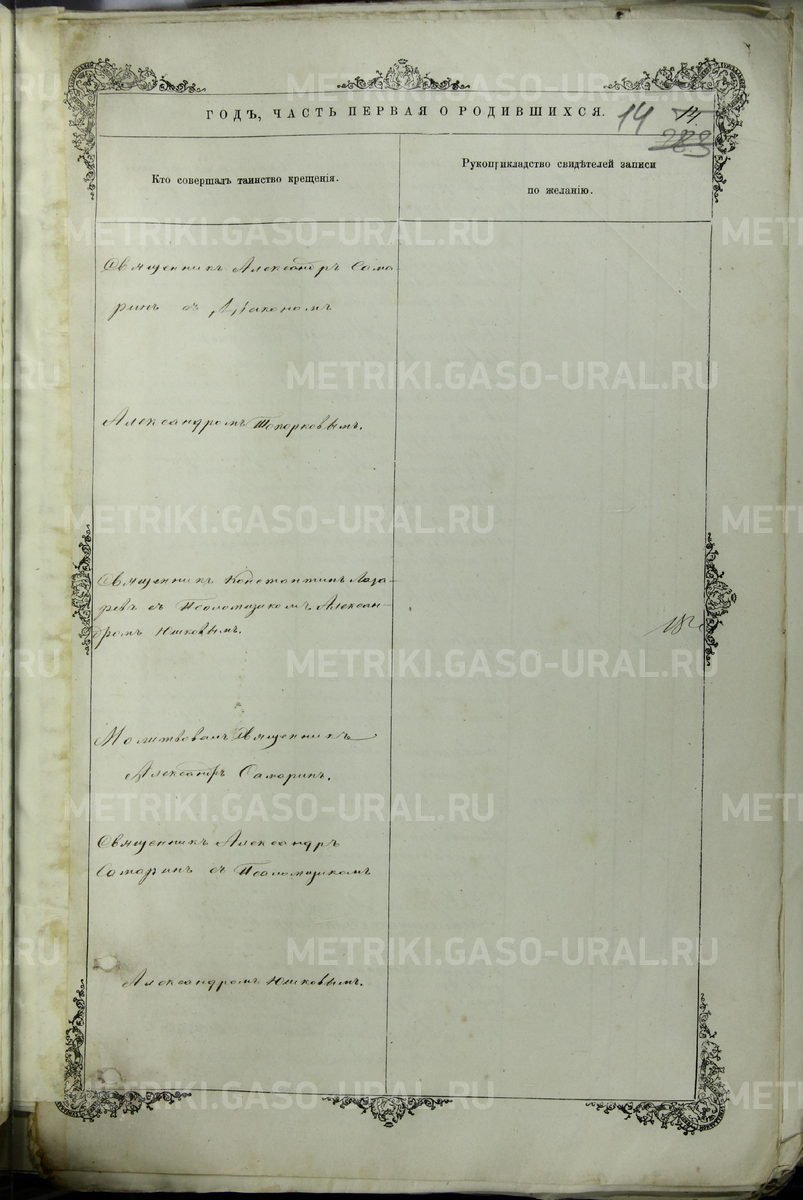 ГОДЪ, ЧАСТЬ ПЕРВАЯ О РОДИВШИХСЯ.
14
14.
283
Кто совершалъ таинство крещенія.
Рукоприкладство свидѣтелей записи
по желанію.
Священникъ Александръ Сама
ринъ съ Діакономъ
Александромъ Топорковымъ.
Священникъ Константинъ Лаза-
ревъ съ Псаломщикомъ Алексан-
дромъ Юшковымъ.
Молитвовалъ Священникъ
Александръ Самаринъ.
Священникъ Александръ
Самаринъ съ Псаломщикомъ
Александромъ Юшковымъ.
METRIKI.GASO-URAL.RU